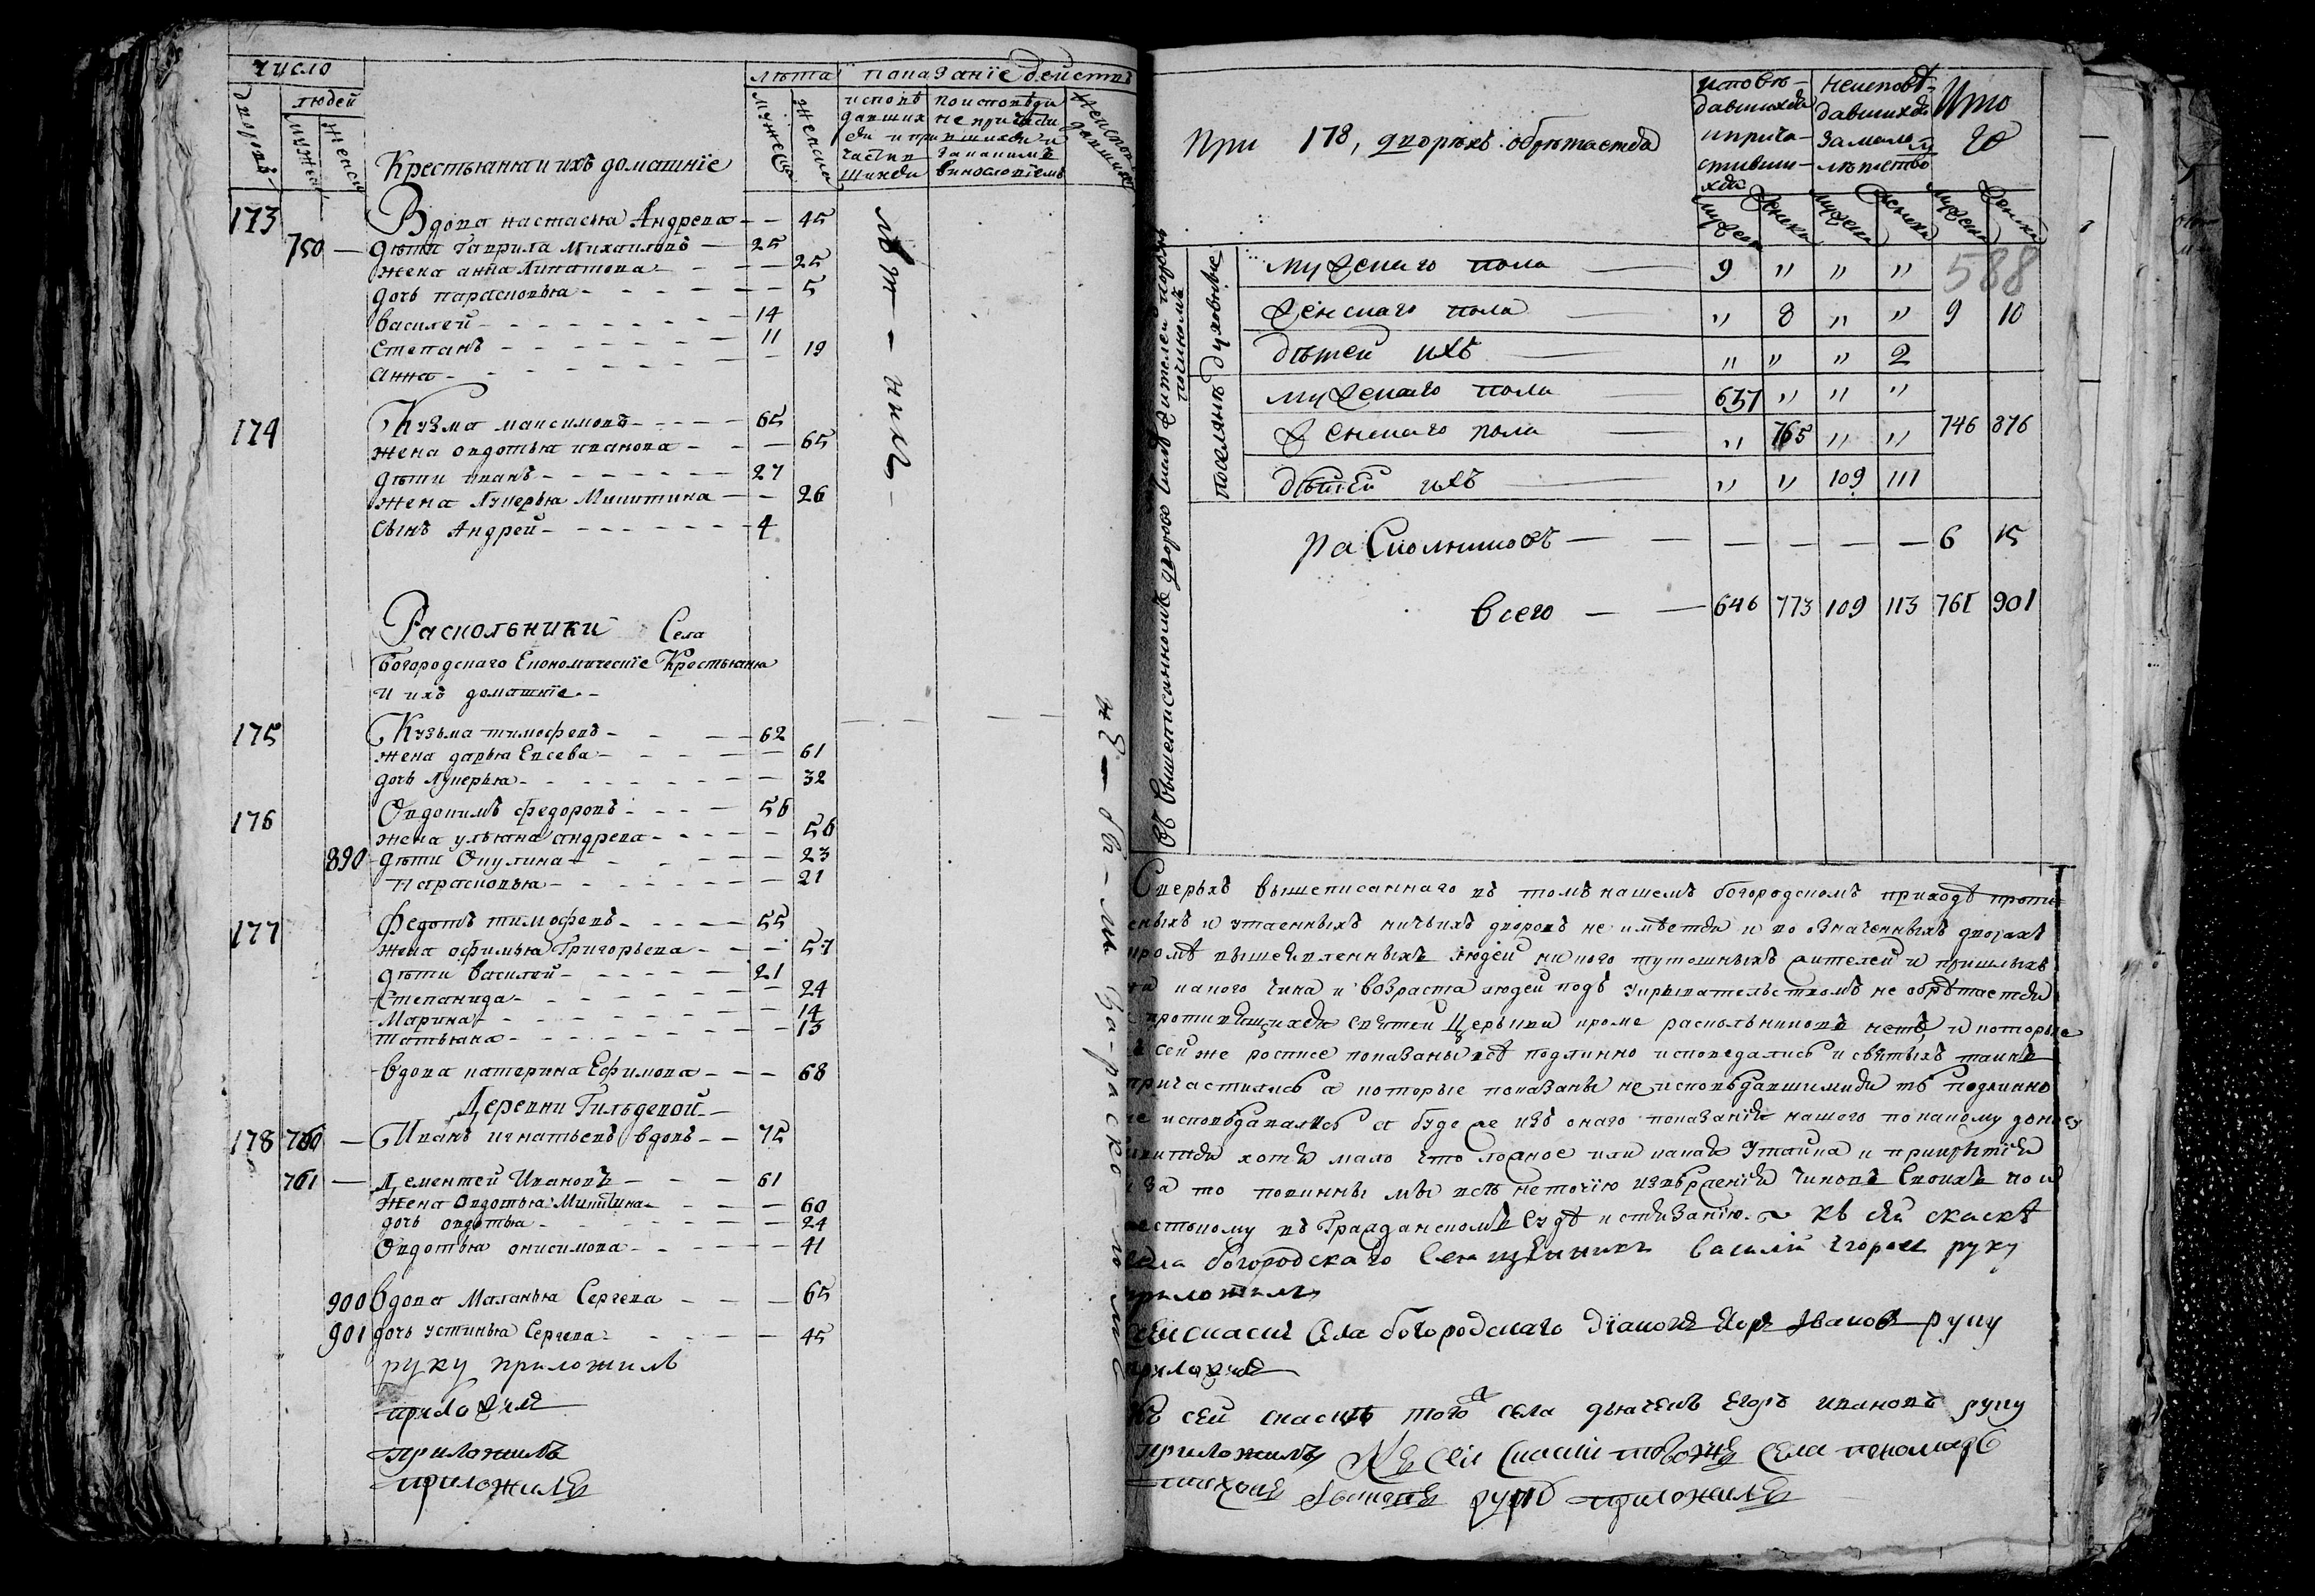 число
людей
дворовъ
мужеска
женска
Крестьяня и ихъ домашнїе
лѣта
мужеска
женска
показанїе действъ
исповѣ
давших
ся и при
частив
шихся
по исповѣди
не причасти
вшихся и
за каким
винословїемъ
неисповѣдавших
173 Вдова настасья Андреева — — 45
750 — дѣти Гаврила Михаиловъ — 25
жена анна Липатова — — — 25
дочь парасковья — — — 5
василей — — — 14
степанъ — — — 11
анна — — — 19
174 Кузма максимовъ — — — 65
жена овдотья иванова — — — 65
дѣти иванъ — — — 27
жена Лукерья Микитина — — 26
сынъ Андрей — — — 4
Раскольники Села
Богородскаго Економическїе Крестьяня
и ихъ домашнїе —
175 Кузьма тимофеевъ — — — 62
жена дарья Евсева — — — 61
дочь Лукерья — — — 32
176 Овдокимъ федоровъ — — — 56
жена ульяна андреева — — — 56
890 дѣти Окулина — — — 23
парасковья — — — 21
177 Федотъ тимофеевъ — — — 55
жена офимья Григорьева — — — 57
дѣти Василей — — — 21
Степанида — — — 24
Марина — — — 14
татьяна — — — 13
вдова катерина Ефимова — — — 68
Деревни Гильдевой —
178 760 — Иванъ игнатьевъ вдовъ — — 75
761 — Дементей Ивановъ — — — 61
жена Овдотья Микитина — — — 60
дочь овдотья — — — 24
Овдотья онисимова — — — 41
900 вдова Маланья Сергева — — — 65
901 дочь устинья Сергева — — — 45
руку приложилъ
приложилъ
приложилъ
приложилъ
При 178, дворѣхъ обрѣтается
исповѣ-
давшихся
и прича-
стивши-
хся
неисповѣ-
давшихся
за мало-
лѣтство
Ито
го
мужеска женска мужеска женска мужеска женска
588
духовные
мужескаго пола — 9 " " "
женскаго пола — " 8 " " 9 10
дѣтей ихъ — " " " 2
поселянъ
мужескаго пола — 637 " " "
женскаго пола — " 765 " " 746 876
дѣтей ихъ — " " 109 111
раскольниковъ — — — — — — 6 15
всего — — 646 773 109 113 761 901
Сверьхъ вышеписаннаго въ томъ нашемъ богородскомъ приходѣ
и утаенныхъ ничьихъ дворовъ не имѣется и во означенныхъ дворахъ
людей никого тутошныхъ жителей и пришлыхъ
какого чина и возраста людей подъ укрывательствомъ не обрѣтается
святей Церькви кроме раскольниковъ нетъ, и которые
сей же росписе показаны всѣ подлинно исповедались и святыхъ таинъ
причастились а которые показаны не исповѣдавшимися тѣ подлинно
не исповѣдавались а буде же изъ онаго показанїя нашего по какому
хотя мало что ложное или какая утайка и прикрытїя
за то повинны мы всѣ не точїю извержения чиновъ своихъ но и
въ Гражданскомъ судѣ истязанїю. къ сей скаскѣ
села богородскаго священникъ василий егоровъ руку
приложилъ
сей скаске села богородскаго дїаконъ Иванов руку
приложилъ
къ сей скаскѣ того села дьячекъ егоръ ивановъ руку
приложилъ К сей скаски тогожъ села пономарь
руку приложилъ